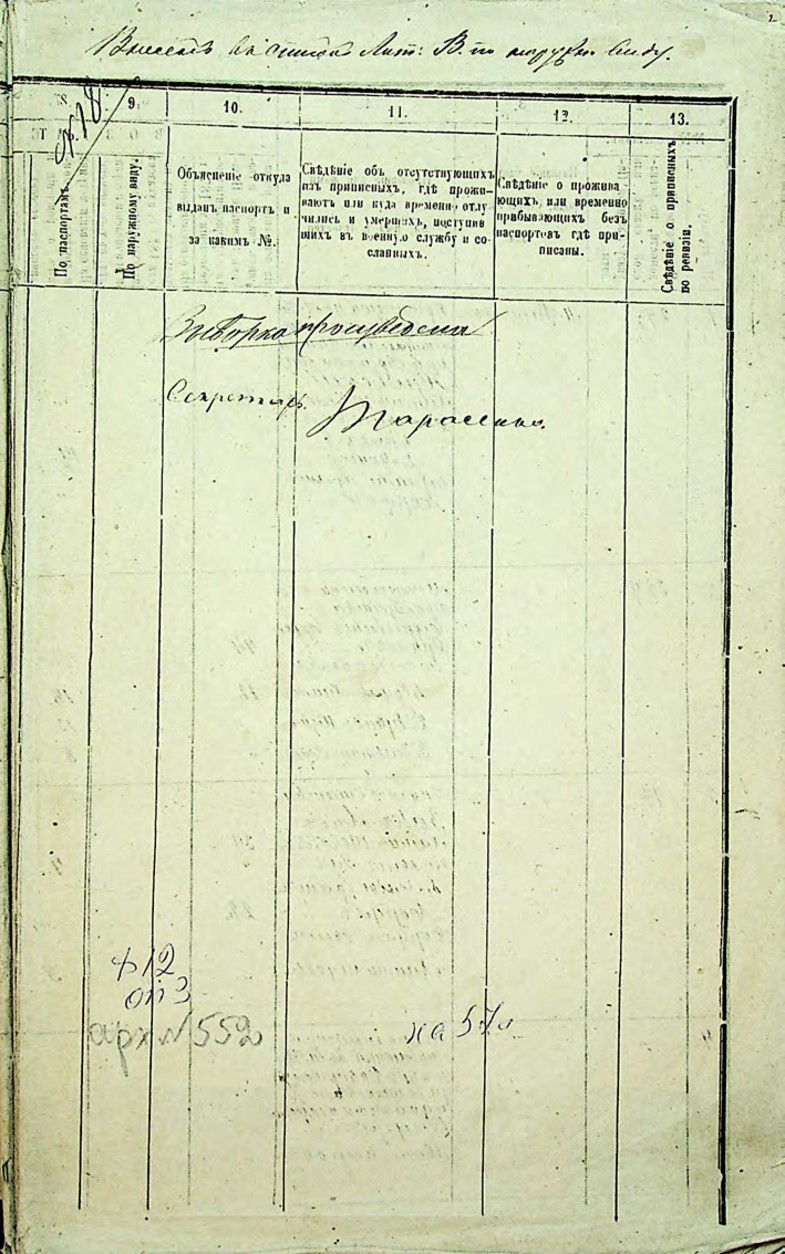 въ списокъ Лит: В. по наружн. виду.
8. 9. 10. 11. 12. 13.
По паспортамъ.
По наружному виду.
Объясненіе откуда
выданъ паспортъ и
за какимъ №.
Свѣдѣніе объ отсутствующихъ
изъ приписныхъ, гдѣ прожи-
ваютъ или куда временно отлу
чились и умершихъ, поступив
шихъ въ военную службу и со-
сланныхъ.
Свѣдѣніе о прожива
ющихъ или временно
прибывающихъ безъ
паспортовъ гдѣ при-
писаны.
Свѣдѣніе о приписныхъ
по ревизіи.
Выборка произведена
Секретарь. Тарасенко.
ф 12
оп 3
арх № 552
на 57 л